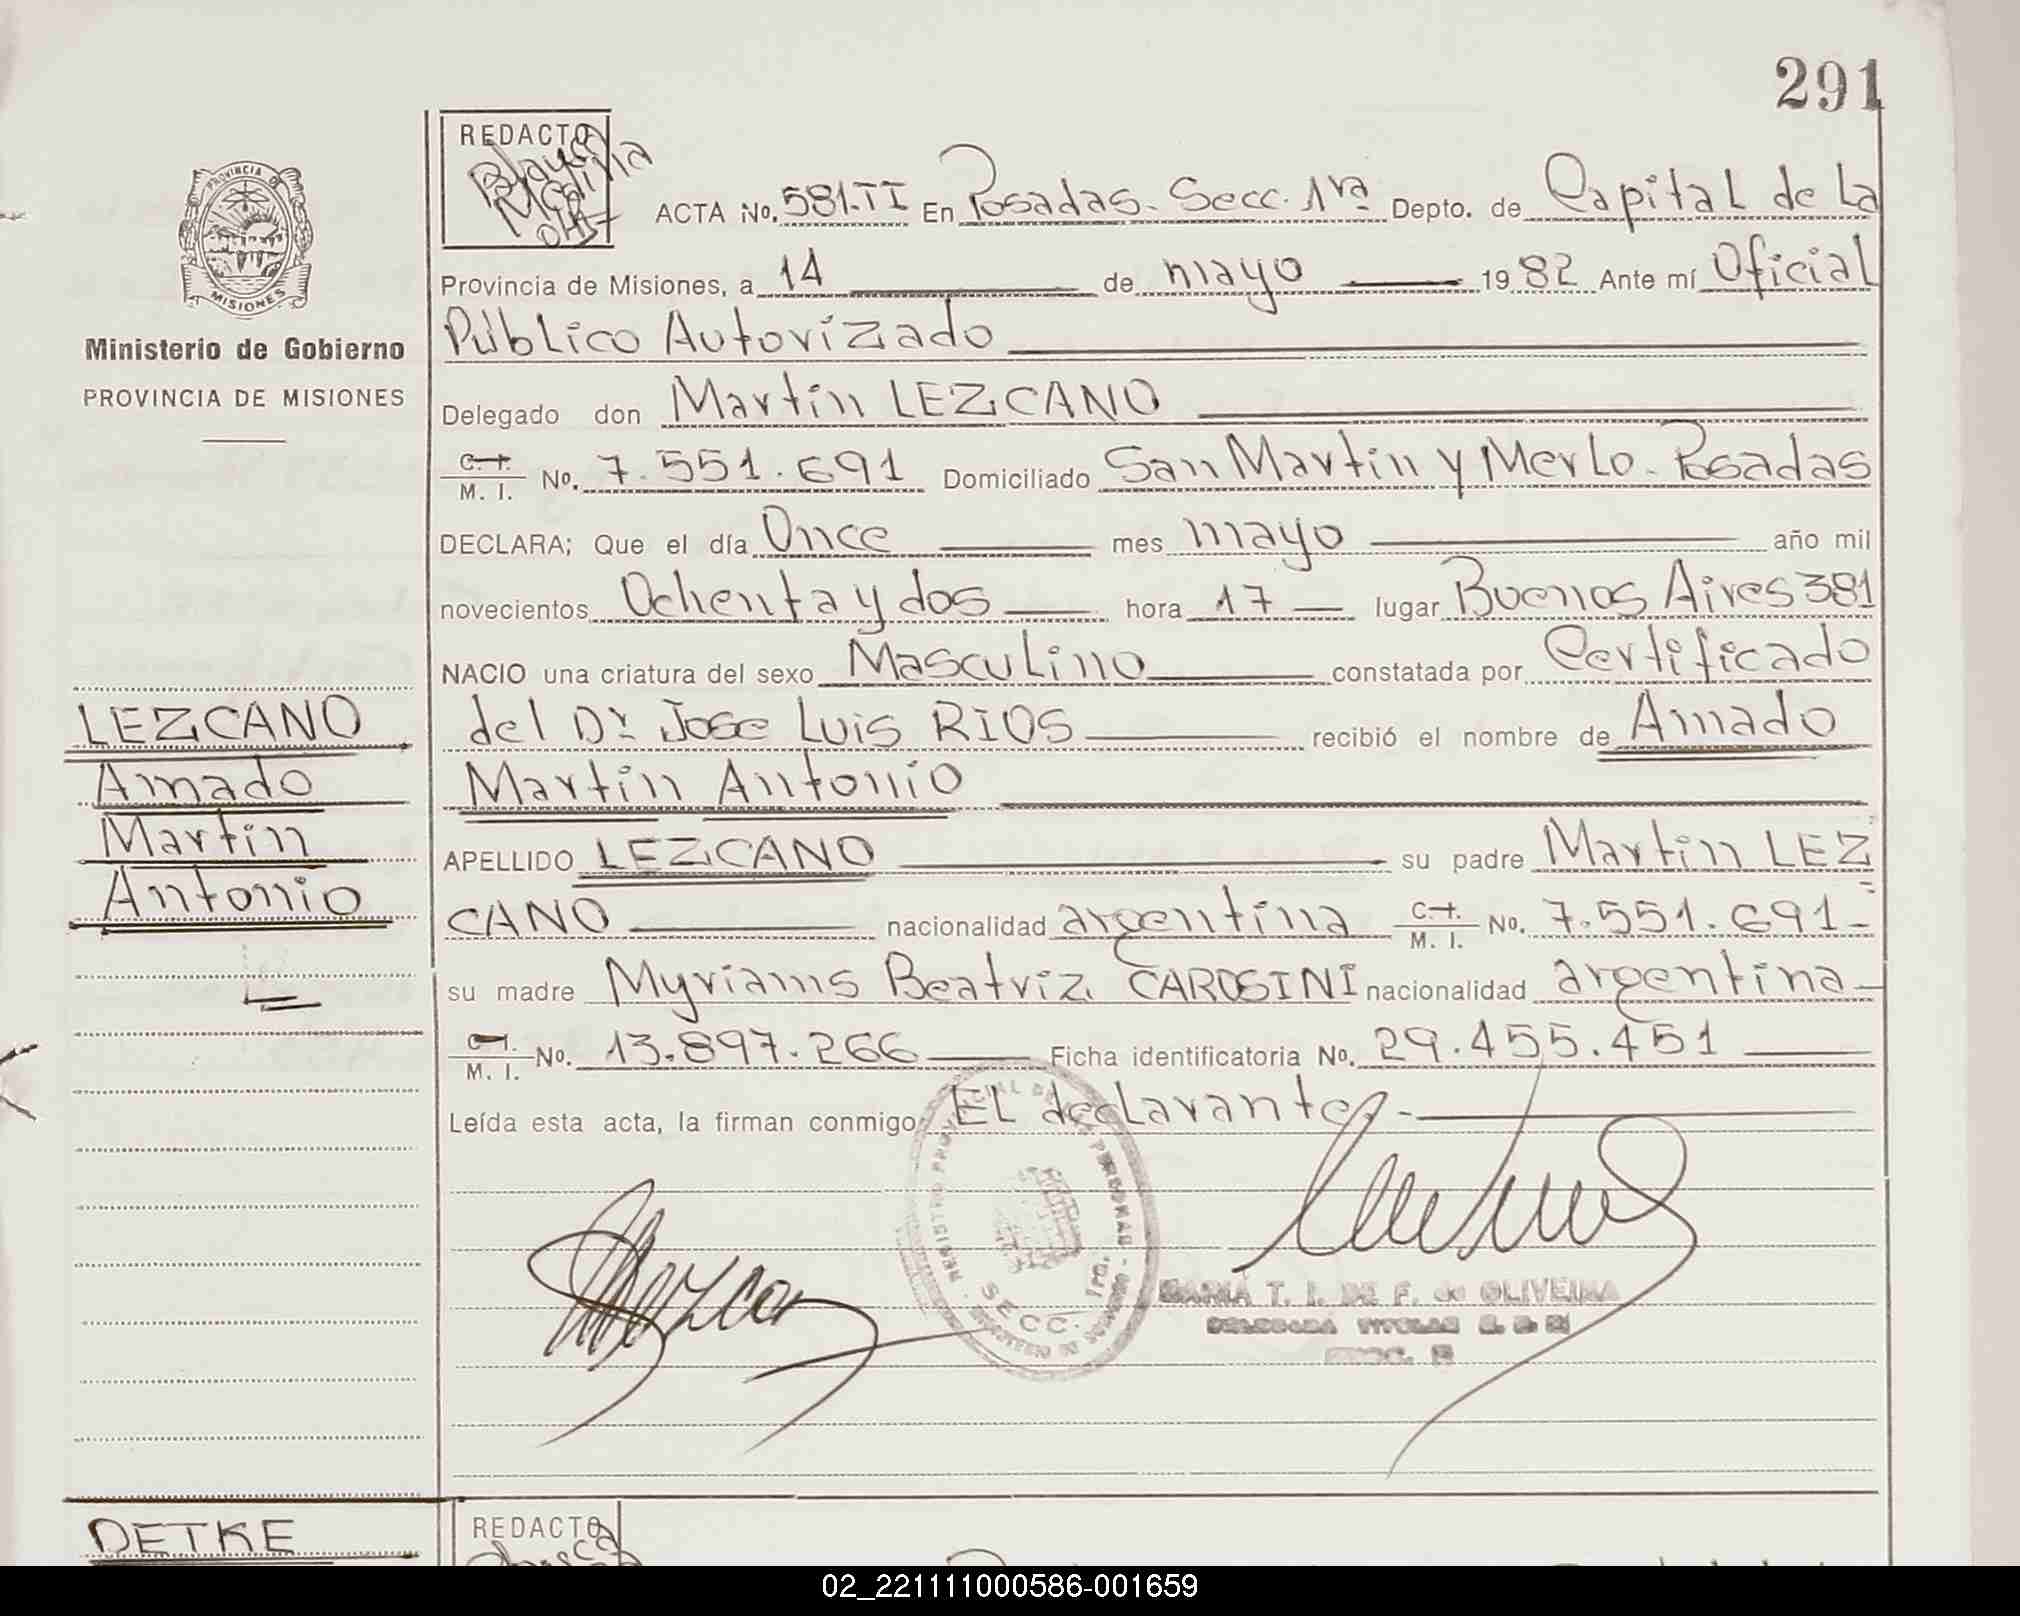 291
PROVINCIA DE
MISIONES
Ministerio de Gobierno
PROVINCIA DE MISIONES
REDACTO
Medina
ACTA No. 581-TI En Posadas. Secc. 1ra Depto. de Capital de La
Provincia de Misiones, a 14 de mayo 1982 Ante mí Oficial
Público Autorizado
Delegado don Martín LEZCANO
C. I.
M. I. No. 7.551.691 Domiciliado San Martin y Merlo - Posadas
DECLARA; Que el día Once mes mayo año mil
novecientos Ochenta y dos hora 17 lugar Buenos Aires 381
NACIO una criatura del sexo Masculino constatada por Certificado
del Dr. Jose Luis RIOS recibió el nombre de Amado
Martín Antonio
APELLIDO LEZCANO su padre Martín LEZ
CANO nacionalidad argentina C. I. M. I. No. 7.551.691-
su madre Myriams Beatriz CAROSINI nacionalidad argentina
C. I.
M. I. No. 13.897.266 Ficha identificatoria No. 29.455.451
Leída esta acta, la firman conmigo El declarante.-
LEZCANO
Amado
Martín
Antonio
SECC. 1ra.
MARIA T. I. DE F. de OLIVEIRA
DELEGADA TITULAR
DETKE
REDACTO
02_221111000586-001659